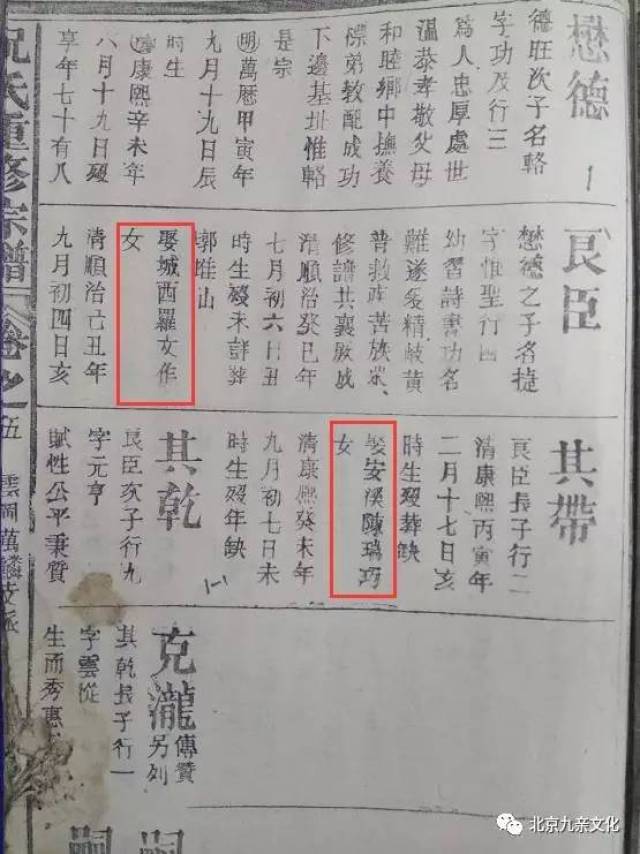 懋德
德旺次子名輅
字功及行三
爲人忠厚處世
溫恭孝敬父母
和睦鄉中撫養
傺弟教配成功
下邊基址惟輅
是宗
明萬曆甲寅年
九月十九日辰
時生
康熙辛未年
八月十九日歿
享年七十有八
良臣
懋德之子名捷
字惟聖行四
幼習詩書功名
難遂爰精岐黄
普救疾苦族眾
修譜共襄厥成
清順治癸巳年
七月初六日丑
時生歿未詳葬
郭堆山
娶城西羅文作
女
清順治己丑年
九月初四日亥
其帶
良臣長子行二
清康熙丙寅年
二月十七日亥
時生歿葬缺
娶安溪陳瑞巧
女
清康熙癸未年
九月初七日未
時生歿年缺
其乾
良臣次子行九
字元亨
賦性公平秉質
克瀧
傳贊
另列
其乾長子行一
字雲從
生而秀惠
嗣
嗣
氏重修宗譜
卷之五
雲岡萬鱗支派
北京九亲文化